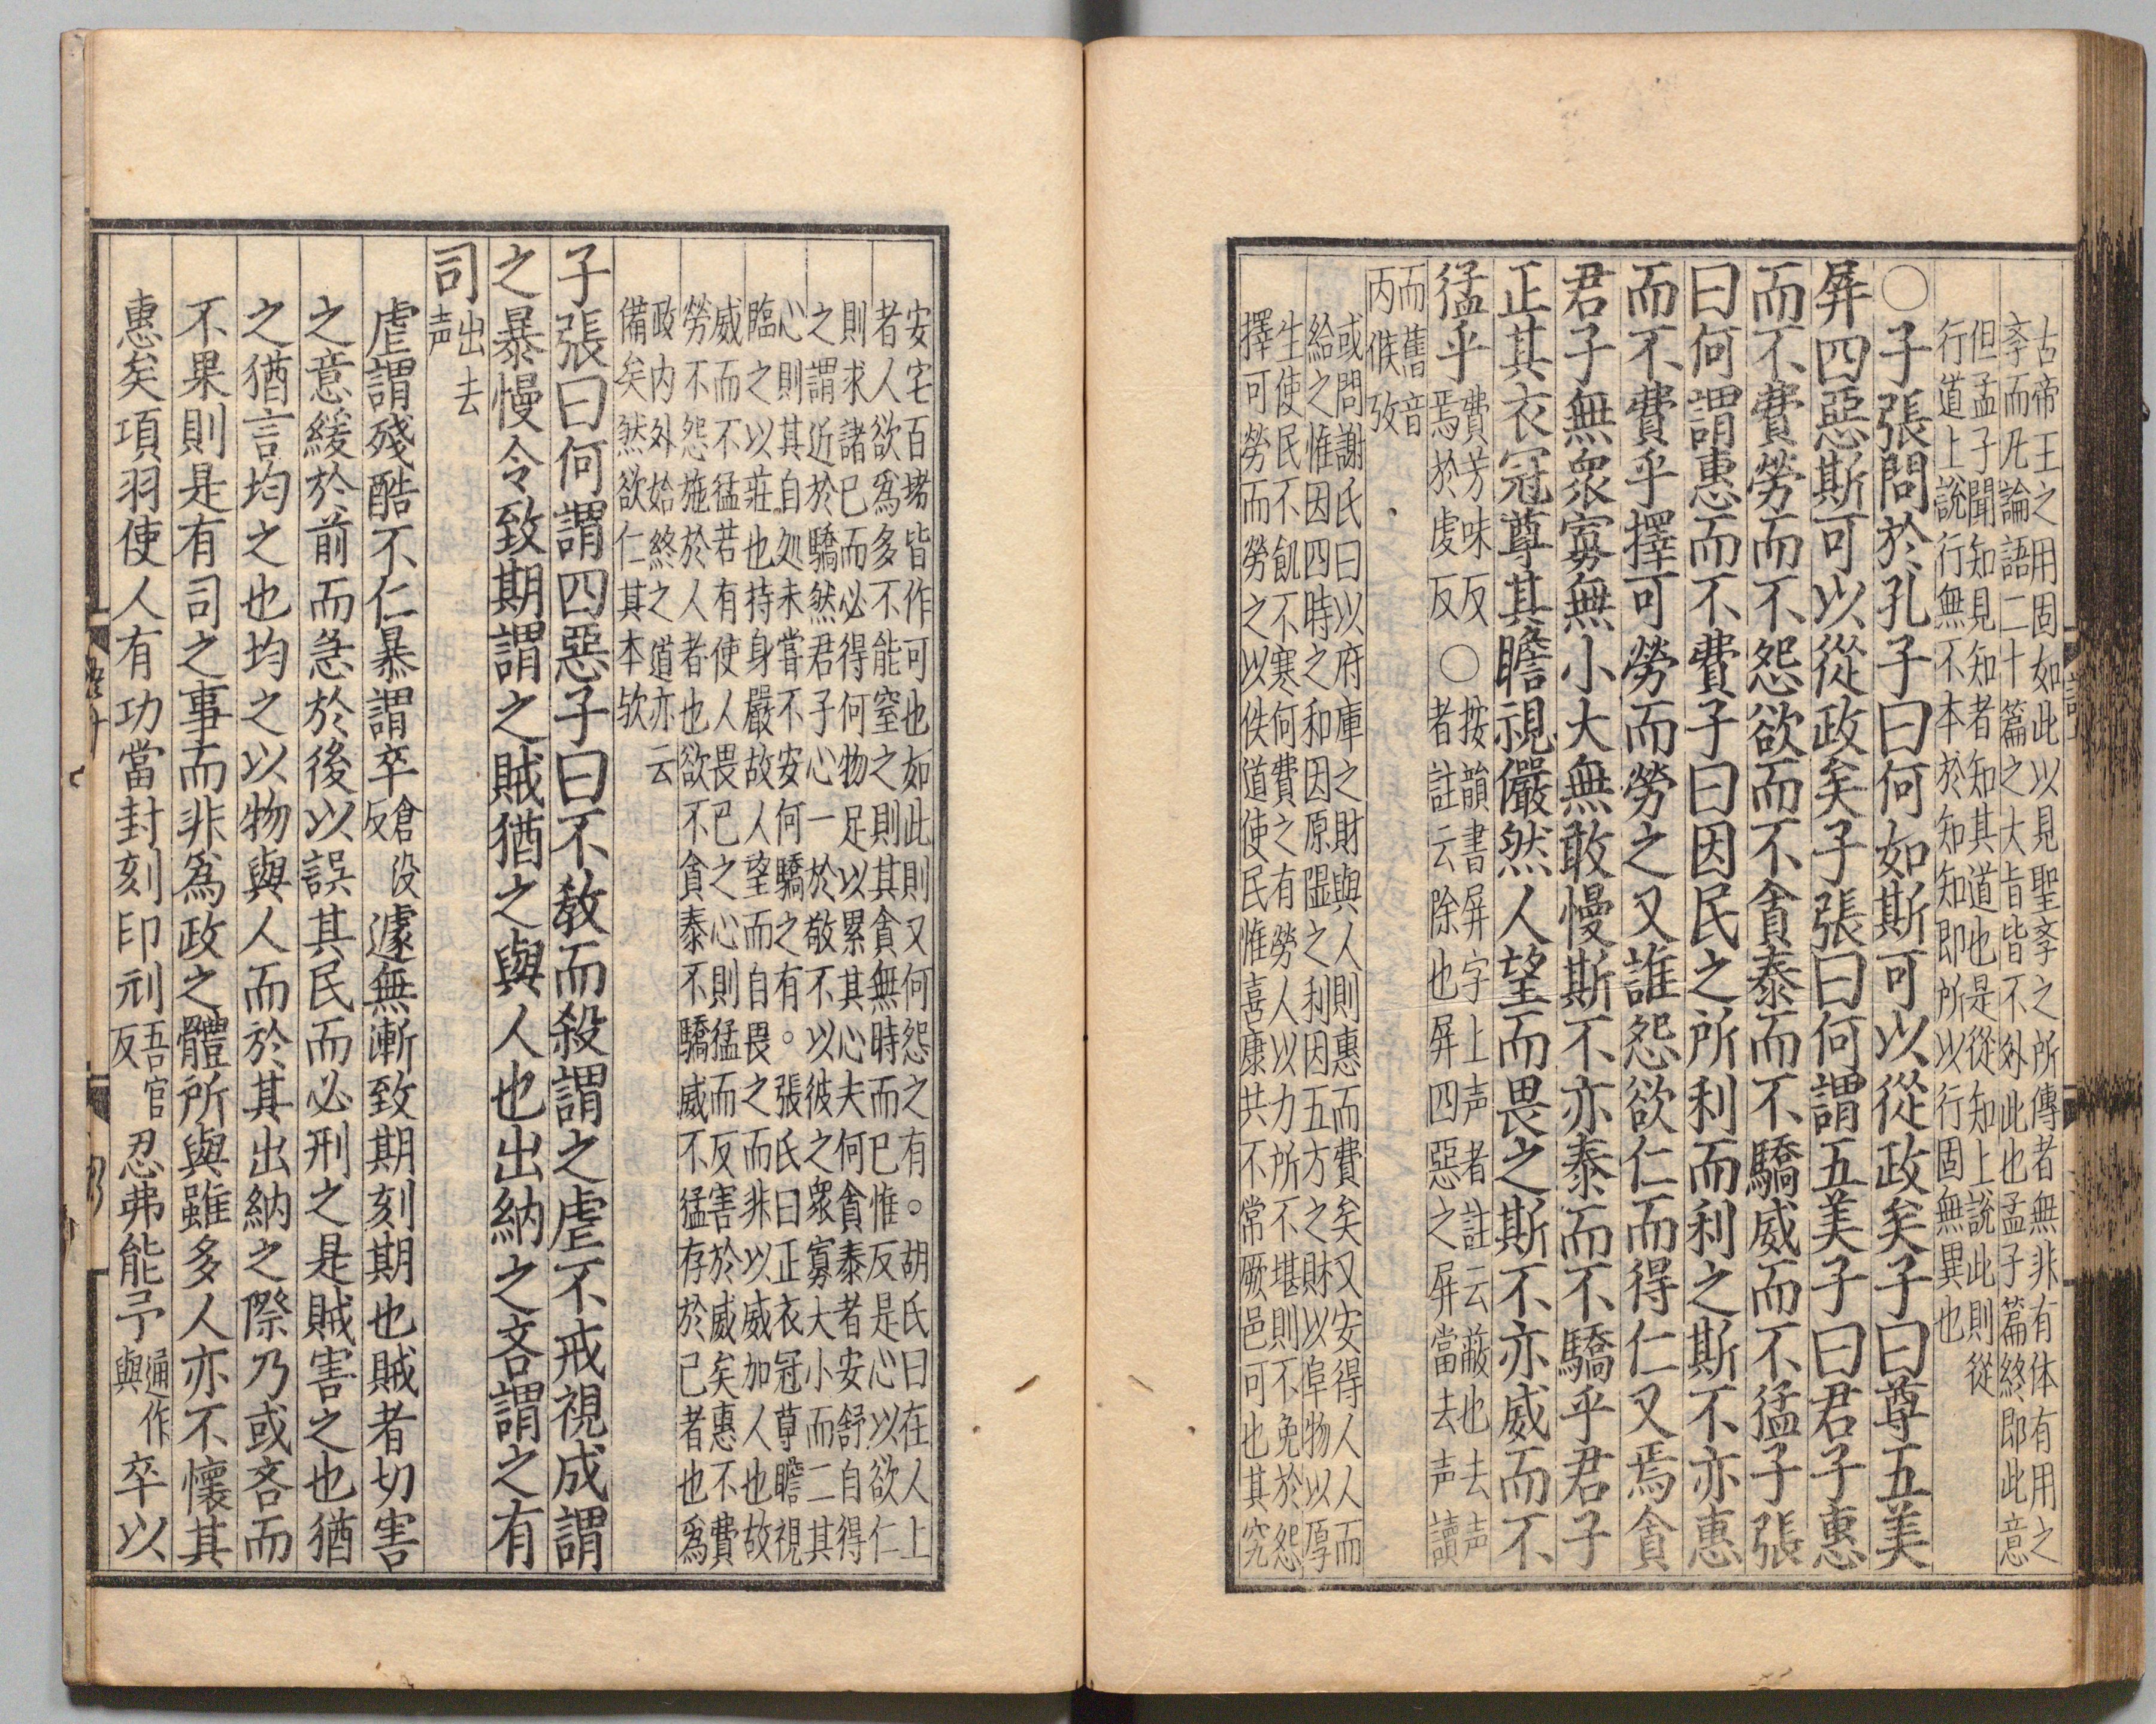 古帝王之用固如此以見聖李之所傳者無非有体有用之
李而凡論語二十篇之大旨皆不外此也孟子篇終即此意
但孟子聞知見知者知其道也是從知上說此則從
行道上說行無不本於知知即所以行固無異也
○子張問於孔子曰何如斯可以從政矣子曰尊五美
屏四惡斯可以從政矣子張曰何謂五美子曰君子惠
而不費勞而不怨欲而不貪泰而不驕威而不猛子張
曰何謂惠而不費子曰因民之所利而利之斯不亦惠
而不費乎擇可勞而勞之又誰怨欲仁而得仁又焉貪
君子無衆寡無小大無敢慢斯不亦泰而不驕乎君子
正其衣冠尊其瞻視儼然人望而畏之斯不亦威而不
猛乎
費芳味反
焉於虔反
○
按韻書屏字上声者註云蔽也去声
者註云除也屏四惡之屏當去声讀
而舊音
丙候攷
或問謝氏曰以府庫之財與人則惠而費矣又安得人人而
給之惟因四時之和因原隰之利因五方之財以阜物以厚
生使民不飢不寒何費之有勞人以力所不堪則不免於怨
擇可勞而勞之以佚道使民惟喜康共不常厥邑可也其究
安宅百堵皆作可也如此則又何怨之有。胡氏曰在人上
者人欲爲多不能窒之則其貪無時而已惟反是心以欲仁
則求諸己而必得何物足以累其心夫何貪泰者安舒自得
之謂近於驕然君子心一於敬不以彼之衆寡大小而二其
心則其自処未嘗不安何驕之有。張氏曰正衣冠尊瞻視
臨之以莊也持身嚴故人望而自畏之而非以威加人也故
威而不猛若有使人畏已之心則猛而反害於威矣惠不費
勞不怨施於人者也欲不貪泰不驕威不猛存於己者也爲
政内外始終之道亦云
備矣然欲仁其本欤
子張曰何謂四惡子曰不敎而殺謂之虐不戒視成謂
之暴慢令致期謂之賊猶之與人也出納之吝謂之有
司
出去
声
虐謂殘酷不仁暴謂卒
倉没
反
遽無漸致期刻期也賊者切害
之意緩於前而急於後以誤其民而必刑之是賊害之也猶
之猶言均之也均之以物與人而於其出納之際乃或吝而
不果則是有司之事而非爲政之體所與雖多人亦不懷其
惠矣項羽使人有功當封刻印刓
吾官
反
忍弗能予
通作
與
卒以